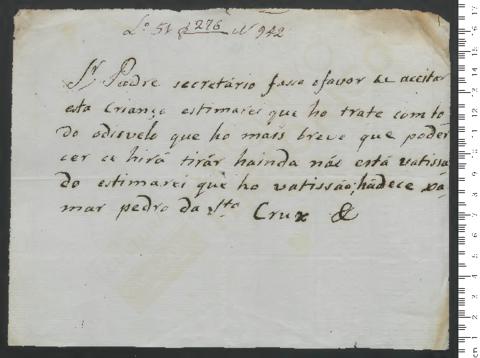 Lº 51 f 276 N 942
Sr Padre secretário fasso ofavor de aceitar
esta criança estimarei que ho trate com to
do odisvelo que ho mais breve que poder
cer ce hirá tirár hainda nás está vatissa
do estimarei que ho vatissão, hádece xa
mar pedro da Sta Crux &